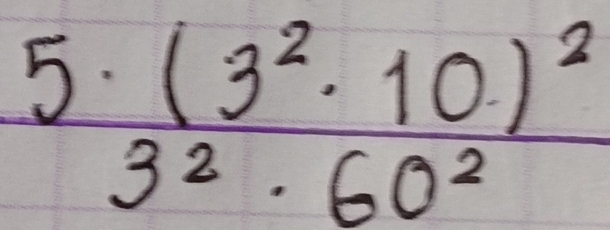 5 · (3² · 10)²
3² · 60²